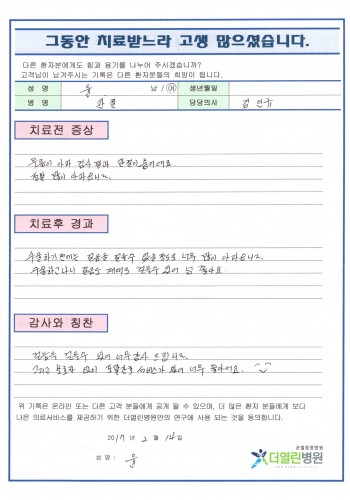 그동안 치료받느라 고생 많으셨습니다.
다른 환자분에게도 힘과 용기를 나누어 주시겠습니까?
고객님이 남겨주시는 기록은 다른 환자분들의 희망이 됩니다.
성 명 윤 남 / 여 생년월일
병 명 관절 담당의사 김
치료전 증상
무릎이 아파 검사 결과 관절이
정말 많이 아파습니다.
치료후 경과
수술하기전에는 걸음을 걸을수 없을 정도로 너무 많이 아파습니다.
수술하고나니 걸음도 제대로 걸을수 있어 넘 좋아요.
감사와 칭찬
걸음을 걸을수 있어 너무 감사 드립니다.
그리고 보호자 없이 서비스가 있어 너무 좋아서요.
위 기록은 온라인 또는 다른 고객 분들에게 공개 될 수 있으며, 더 많은 환자 분들에게 보다
나은 의료서비스를 제공하기 위한 더열린병원만의 연구에 사용 되는 것을 동의합니다.
2017 년 2 월 14 일
성 명 : 윤
관절중점병원
더열린병원